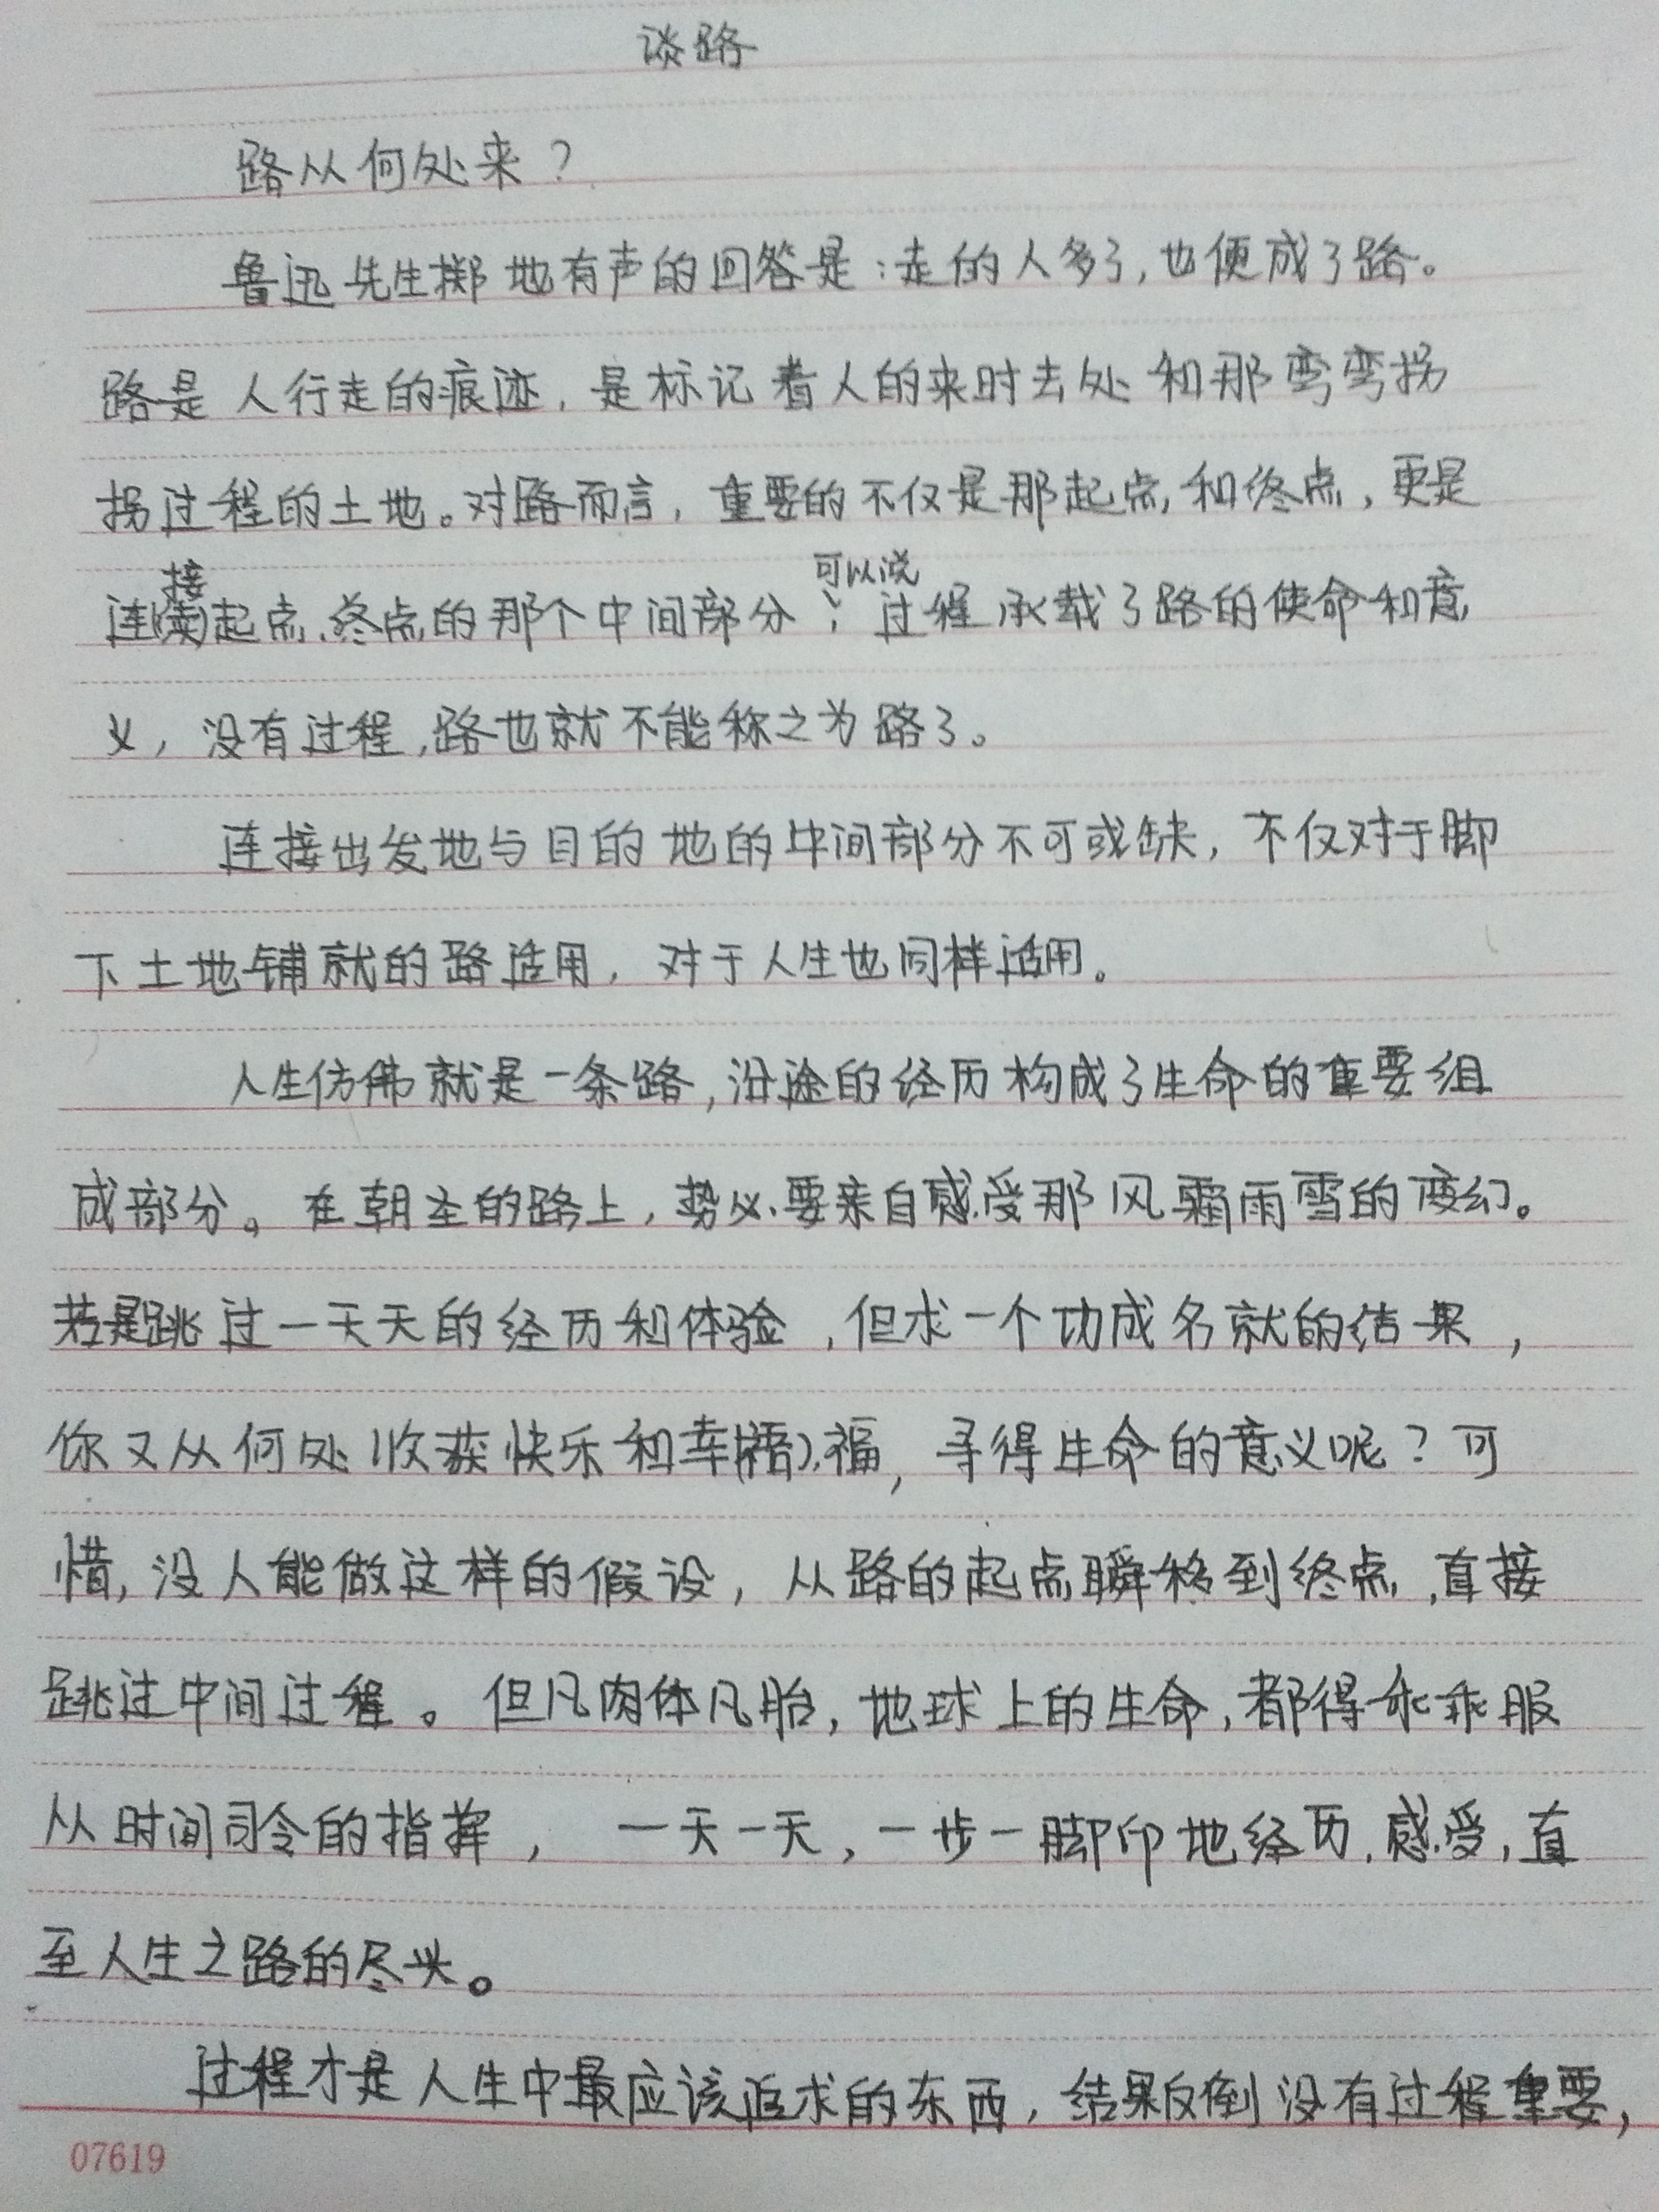 谈路
路从何处来？
鲁迅先生掷地有声的回答是：走的人多了，也便成了路。
路是人行走的痕迹，是标记着人的来时去处和那弯弯拐
拐过程的土地。对路而言，重要的不仅是那起点和终点，更是
接 可以说
连(续)起点、终点的那个中间部分；过程承载了路的使命和意
义，没有过程，路也就不能称之为路了。
连接出发地与目的地的中间部分不可或缺，不仅对于脚
下土地铺就的路适用，对于人生也同样适用。
人生仿佛就是一条路，沿途的经历构成了生命的重要组
成部分。在朝圣的路上，势必要亲自感受那风霜雨雪的变幻。
若是跳过一天天的经历和体验，但求一个功成名就的结果，
你又从何处收获快乐和幸(福)福，寻得生命的意义呢？可
惜，没人能做这样的假设，从路的起点瞬移到终点，直接
跳过中间过程。但凡肉体凡胎，地球上的生命，都得乖乖服
从时间司令的指挥，一天一天，一步一脚印地经历、感受，直
至人生之路的尽头。
过程才是人生中最应该追求的东西，结果反倒没有过程重要，
07619